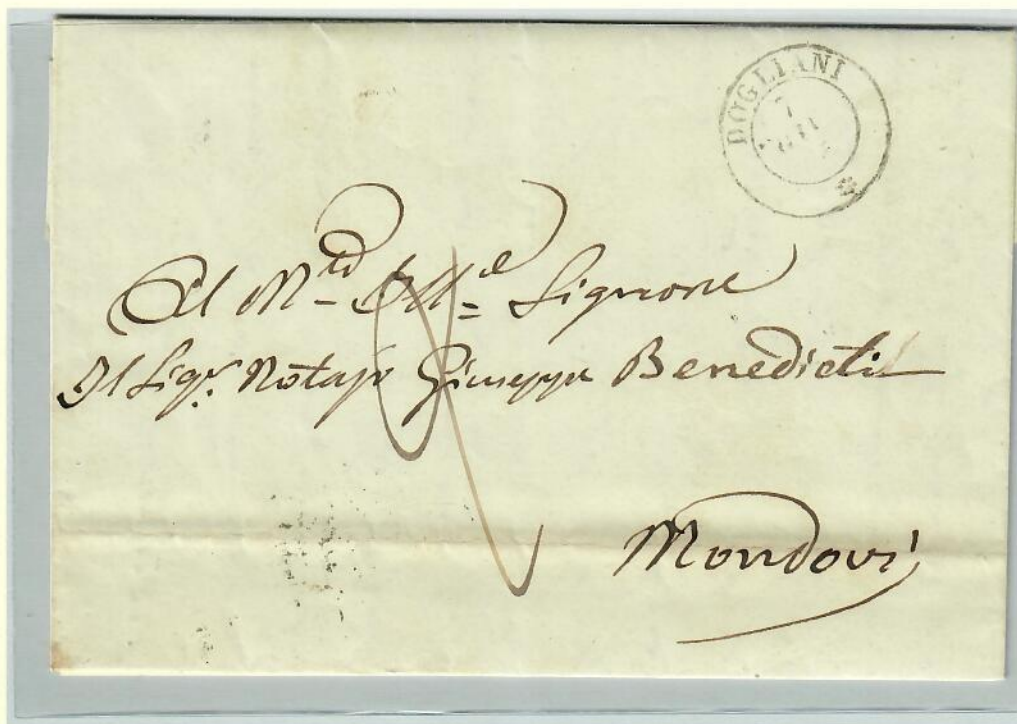 DOGLIANI
7
Al M.to Ill.e Signore
Il Sig.r Notajo Giuseppe Benedicti
Mondovi'